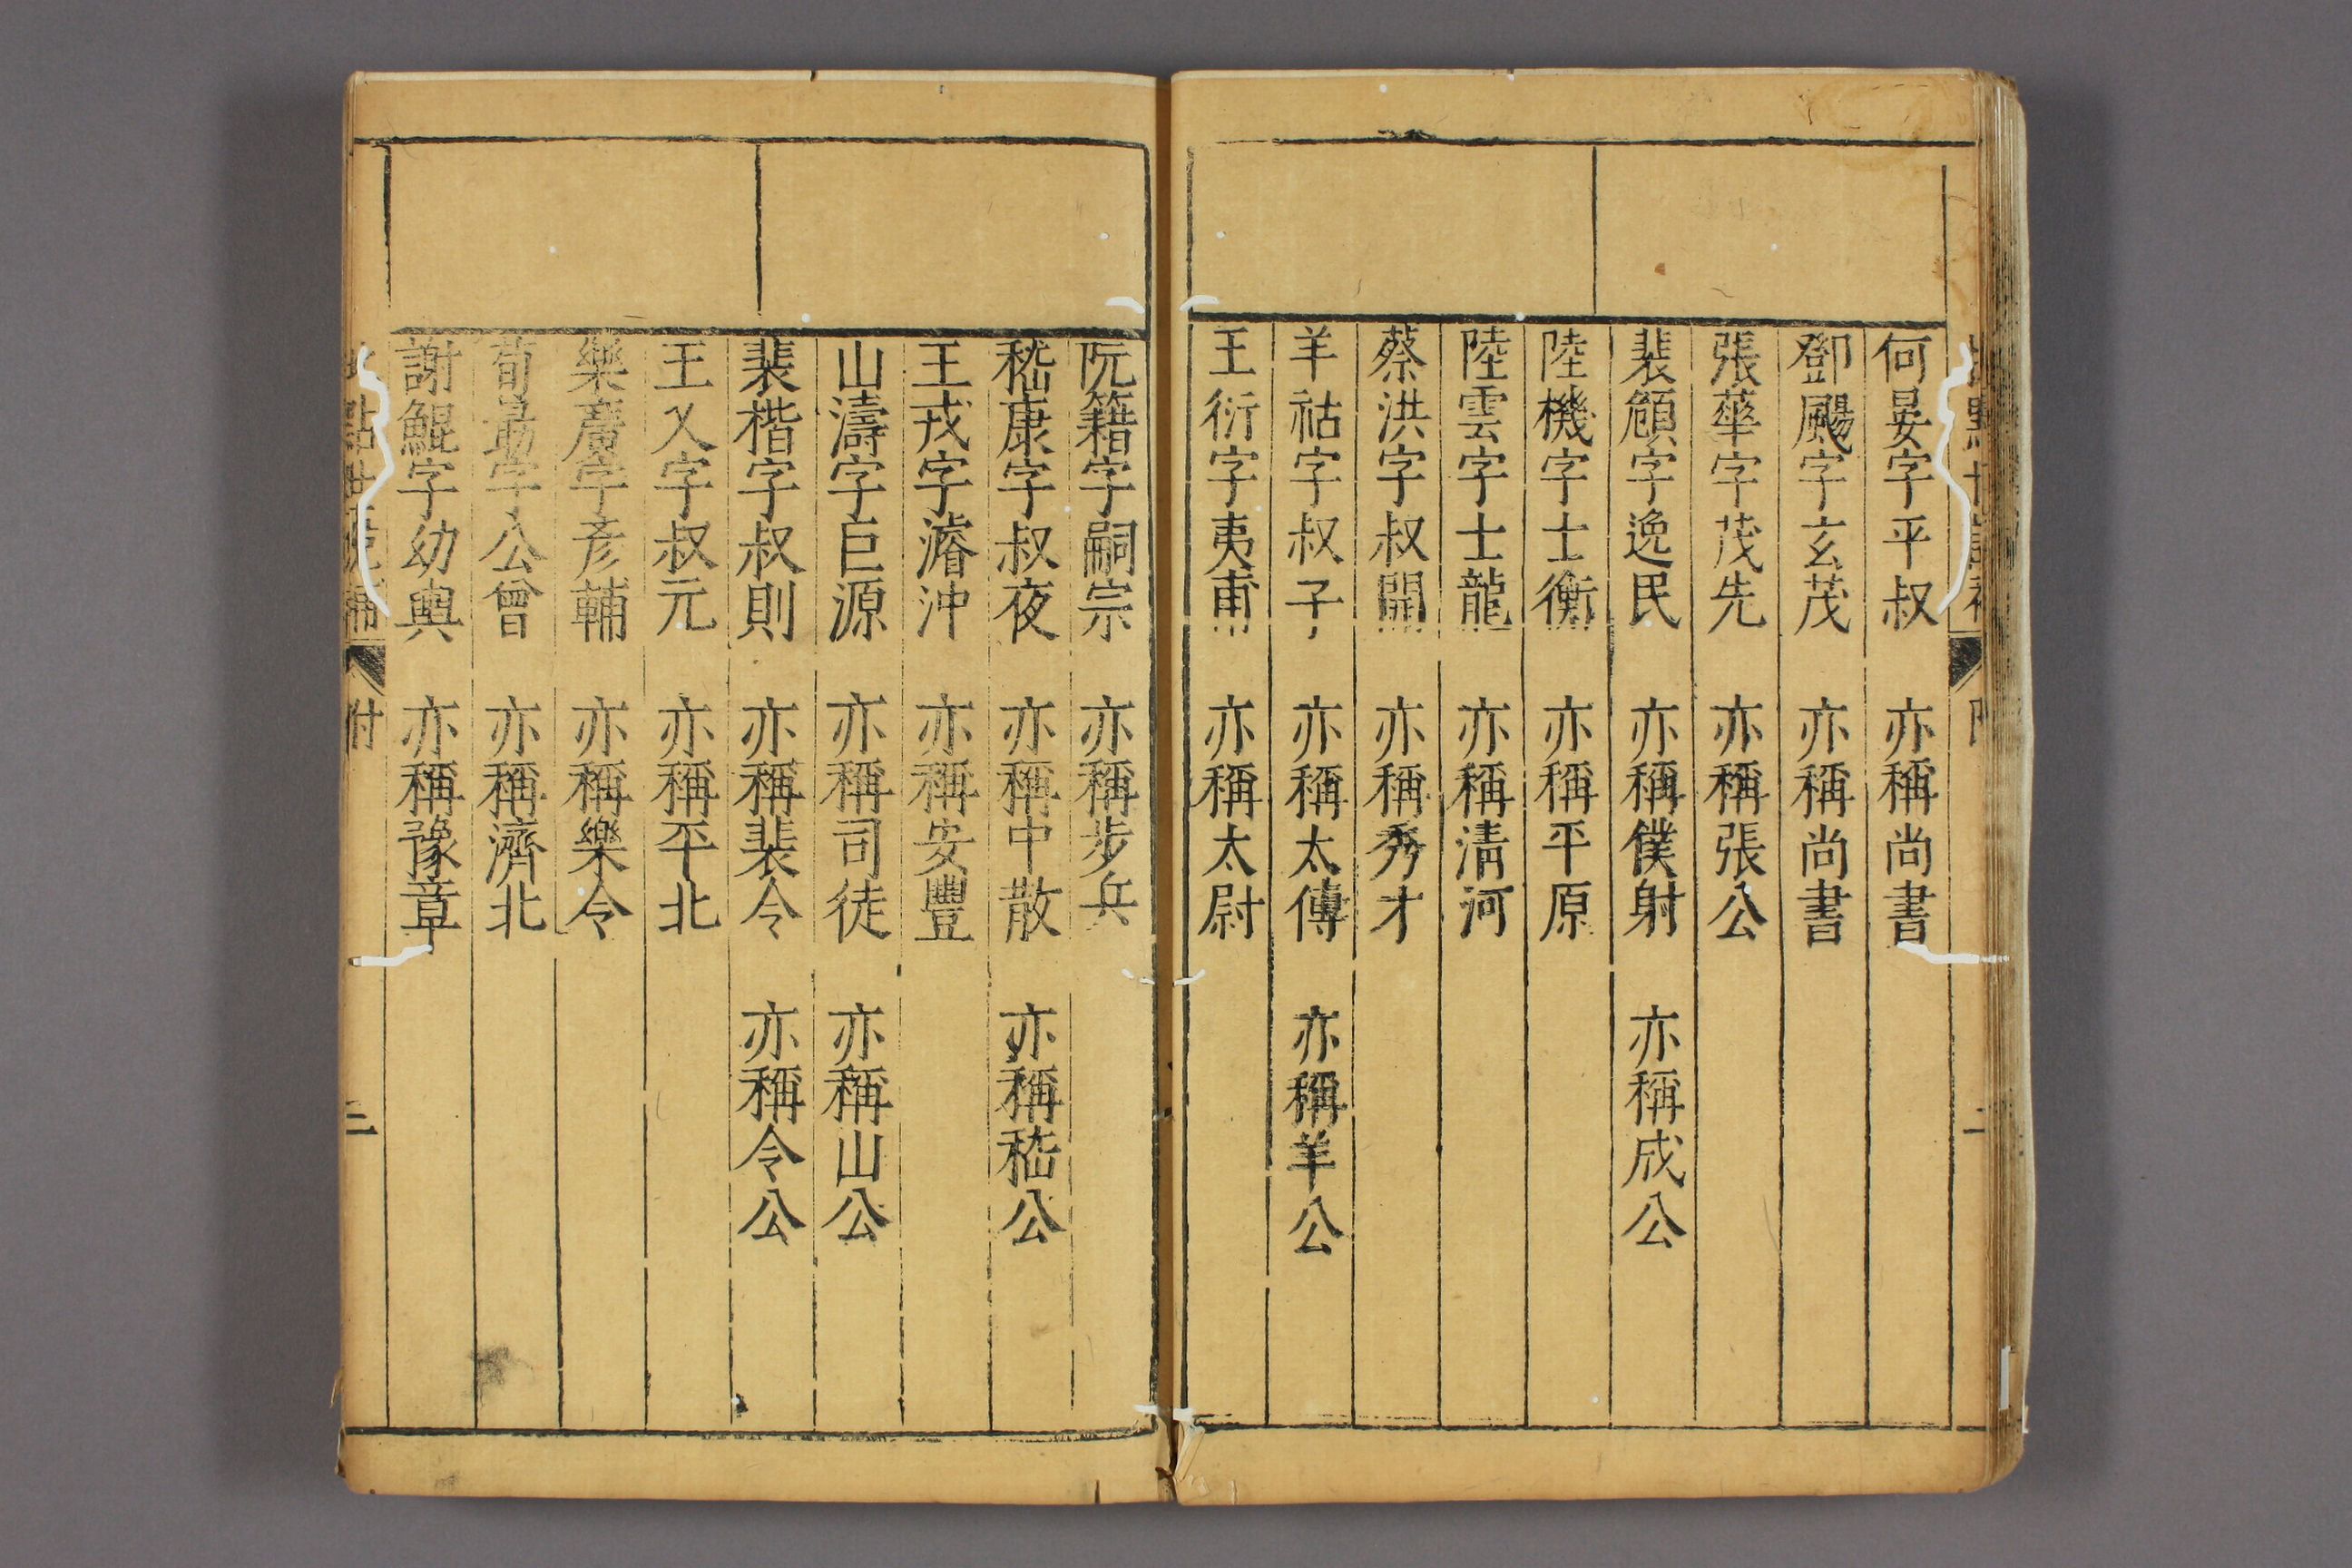 何晏字平叔 亦稱尚書
鄧颺字玄茂 亦稱尚書
張華字茂先 亦稱張公
裴頠字逸民 亦稱僕射 亦稱成公
陸機字士衡 亦稱平原
陸雲字士龍 亦稱清河
蔡洪字叔開 亦稱秀才
羊祜字叔子 亦稱太傅 亦稱羊公
王衍字夷甫 亦稱太尉
阮籍字嗣宗 亦稱步兵
嵇康字叔夜 亦稱中散 亦稱嵇公
王戎字濬沖 亦稱安豐
山濤字巨源 亦稱司徒 亦稱山公
裴楷字叔則 亦稱裴令 亦稱令公
王乂字叔元 亦稱平北
樂廣字彥輔 亦稱樂令
荀勗字公曾 亦稱濟北
謝鯤字幼輿 亦稱豫章
附 三